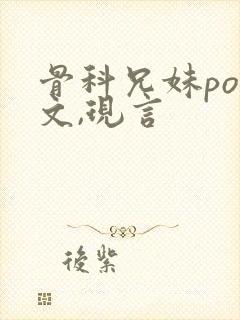 骨科兄妹po
文,現言
後紫